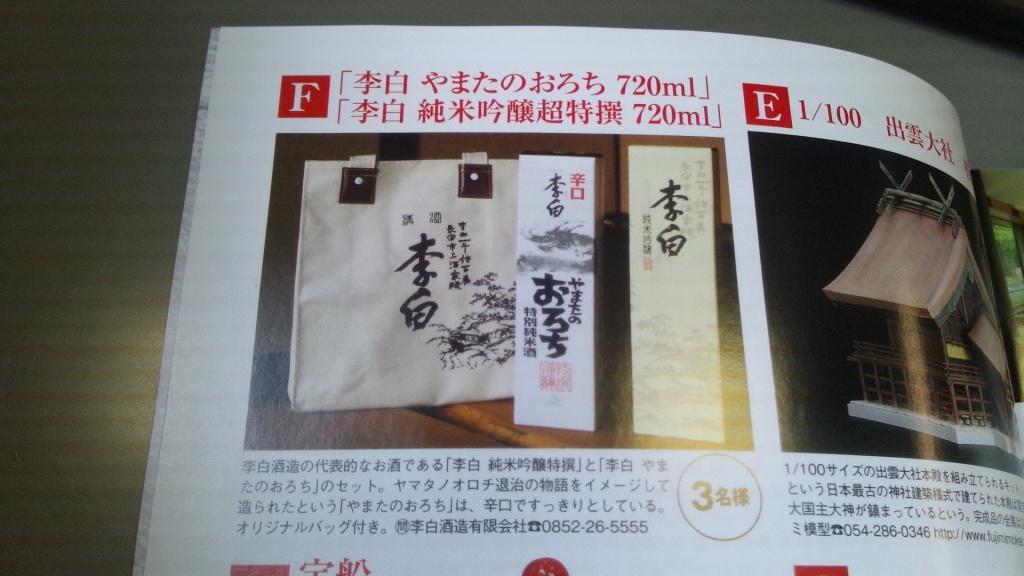 F
「李白 やまたのおろち 720ml」
「李白 純米吟醸超特撰 720ml」
清 酒
李白
辛口
李白
やまたの
おろち
特別純米酒
李白
純米吟醸
李白酒造の代表的なお酒である「李白 純米吟醸特撰」と「李白 やま
たのおろち」のセット。ヤマタノオロチ退治の物語をイメージして
造られたという「やまたのおろち」は、辛口ですっきりとしている。
オリジナルバッグ付き。㉄李白酒造有限会社☎0852-26-5555
3名様
E
1/100 出雲大社
1/100サイズの出雲大社本殿を組み立てられるキッ
という日本最古の神社建築様式で建てられた本殿は
大国主大神が鎮まっているという。完成品の全
ミ模型☎054-286-0346 http://www.fujimimokei
宝船